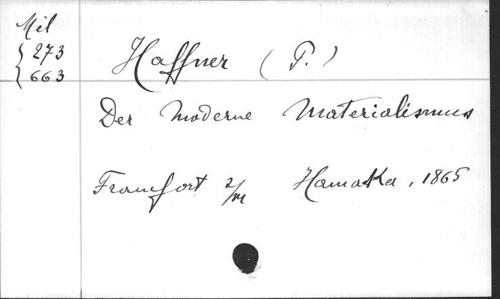 Mél
273
663
Haffner (P.)
Der Moderne Materialismus
Francfort s/m Hamaka, 1865